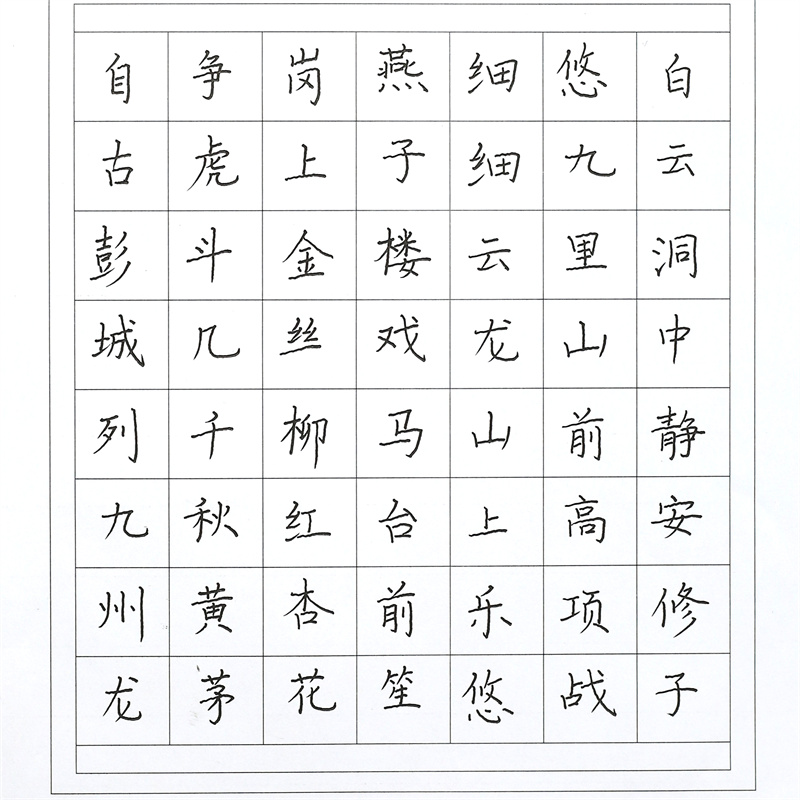 自古彭城列九州龙
争虎斗几千秋黄茅
岗上金丝柳红杏花
燕子楼戏马台前笙
细细云龙山上乐悠
悠九里山前高项战
白云洞中静安修子